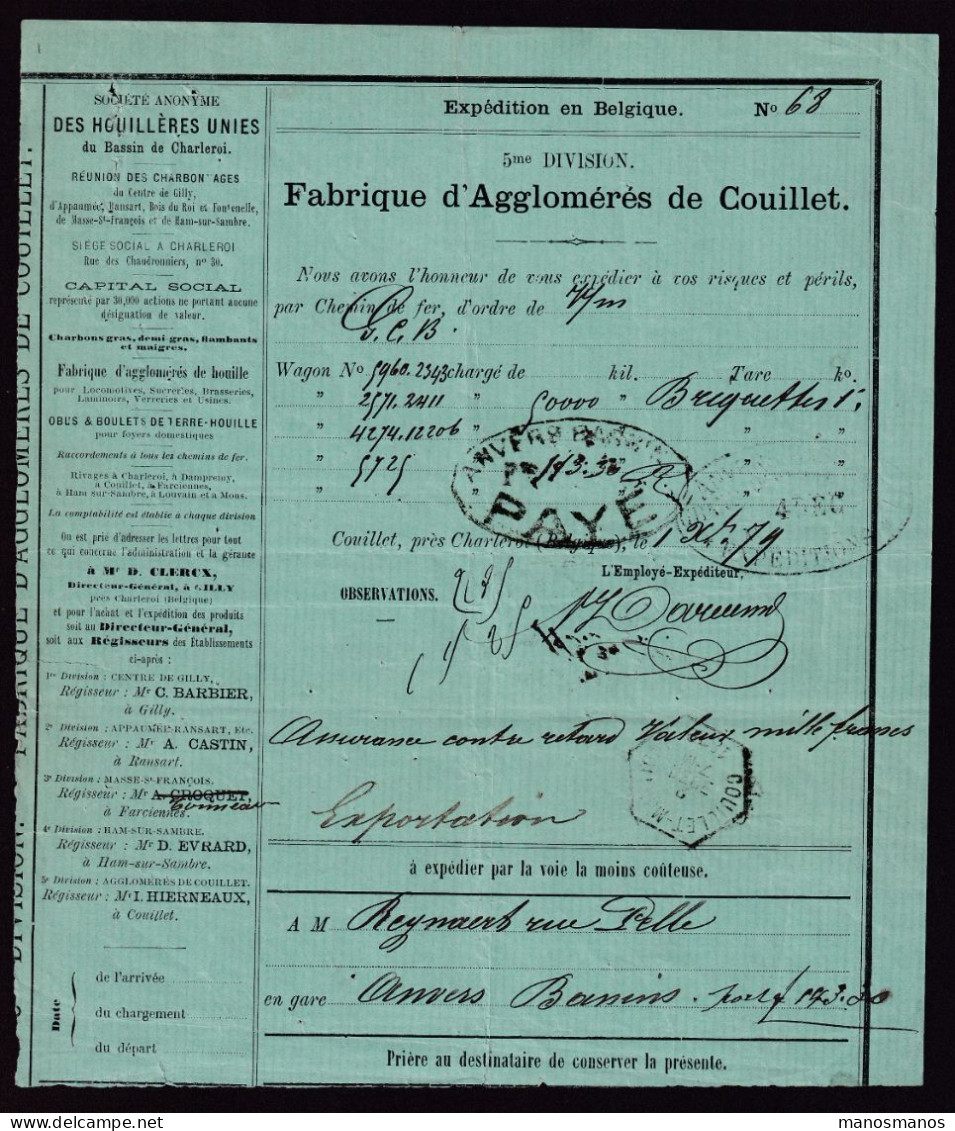 SOCIÉTÉ ANONYME
DES HOUILLÈRES UNIES
du Bassin de Charleroi.
RÉUNION DES CHARBONNAGES
du Centre de Gilly,
d'Appaumée, Ransart, Bois du Roi et Fontenelle,
de Masse-St-François et de Ham-sur-Sambre.
SIÉGE SOCIAL A CHARLEROI
Rue des Chaudronniers, n° 30.
CAPITAL SOCIAL
représenté par 30,000 actions ne portant aucune
désignation de valeur.
Charbons gras, demi-gras, flambants
et maigres.
Fabrique d'agglomérés de houille
pour Locomotives, Sucreries, Brasseries,
Laminoirs, Verreries et Usines.
OBUS & BOULETS DE TERRE-HOUILLE
pour foyers domestiques
Raccordements à tous les chemins de fer.
Rivages à Charleroi, à Dampremy,
à Couillet, à Farciennes,
à Ham sur-Sambre, à Louvain et à Mons.
La comptabilité est établie à chaque division
On est prié d'adresser les lettres pour tout
ce qui concerne l'administration et la gérance
à Mr D. CLERCX,
Directeur-Général, à GILLY
près Charleroi (Belgique)
et pour l'achat et l'expédition des produits
soit au Directeur-Général,
soit aux Régisseurs des Etablissements
ci-après :
1re Division : CENTRE DE GILLY,
Régisseur : Mr C. BARBIER,
à Gilly.
2e Division : APPAUMÉE-RANSART, Etc.
Régisseur : Mr A. CASTIN,
à Ransart.
3e Division : MASSE-St-FRANÇOIS.
Régisseur : Mr A. CROQUET,
à Farciennes.
4e Division : HAM-SUR-SAMBRE.
Régisseur : Mr D. EVRARD,
à Ham-sur-Sambre.
5e Division : AGGLOMÉRÉS DE COUILLET.
Régisseur : Mr I. HIERNEAUX,
à Couillet.
Date
de l'arrivée
du chargement
du départ
DIVISION. FABRIQUE D'AGGLOMÉRÉS DE COUILLET.
Expédition en Belgique. No 68
5me DIVISION.
Fabrique d'Agglomérés de Couillet.
Nous avons l'honneur de vous expédier à vos risques et périls,
par Chemin de fer, d'ordre de
v. C. B.
Wagon No 5960.2343 chargé de kil. Tare ko.
" 2571.2411 " 50000 " Briquettes 1
" 4274.12206 " " "
" 5725 " 173.30 " "
" " " "
ANVERS BASSINS
PAYÉ
EXPEDITION
Couillet, près Charleroi (Belgique), le 1 Xbr 79
L'Employé-Expéditeur,
OBSERVATIONS.
Assurance contre retard Valeur mille francs
COUILLET-M
Exportation
à expédier par la voie la moins coûteuse.
A M Reynaert rue Pelle
en gare Anvers Bassins. port f 173.30
Prière au destinataire de conserver la présente.
manosmanos